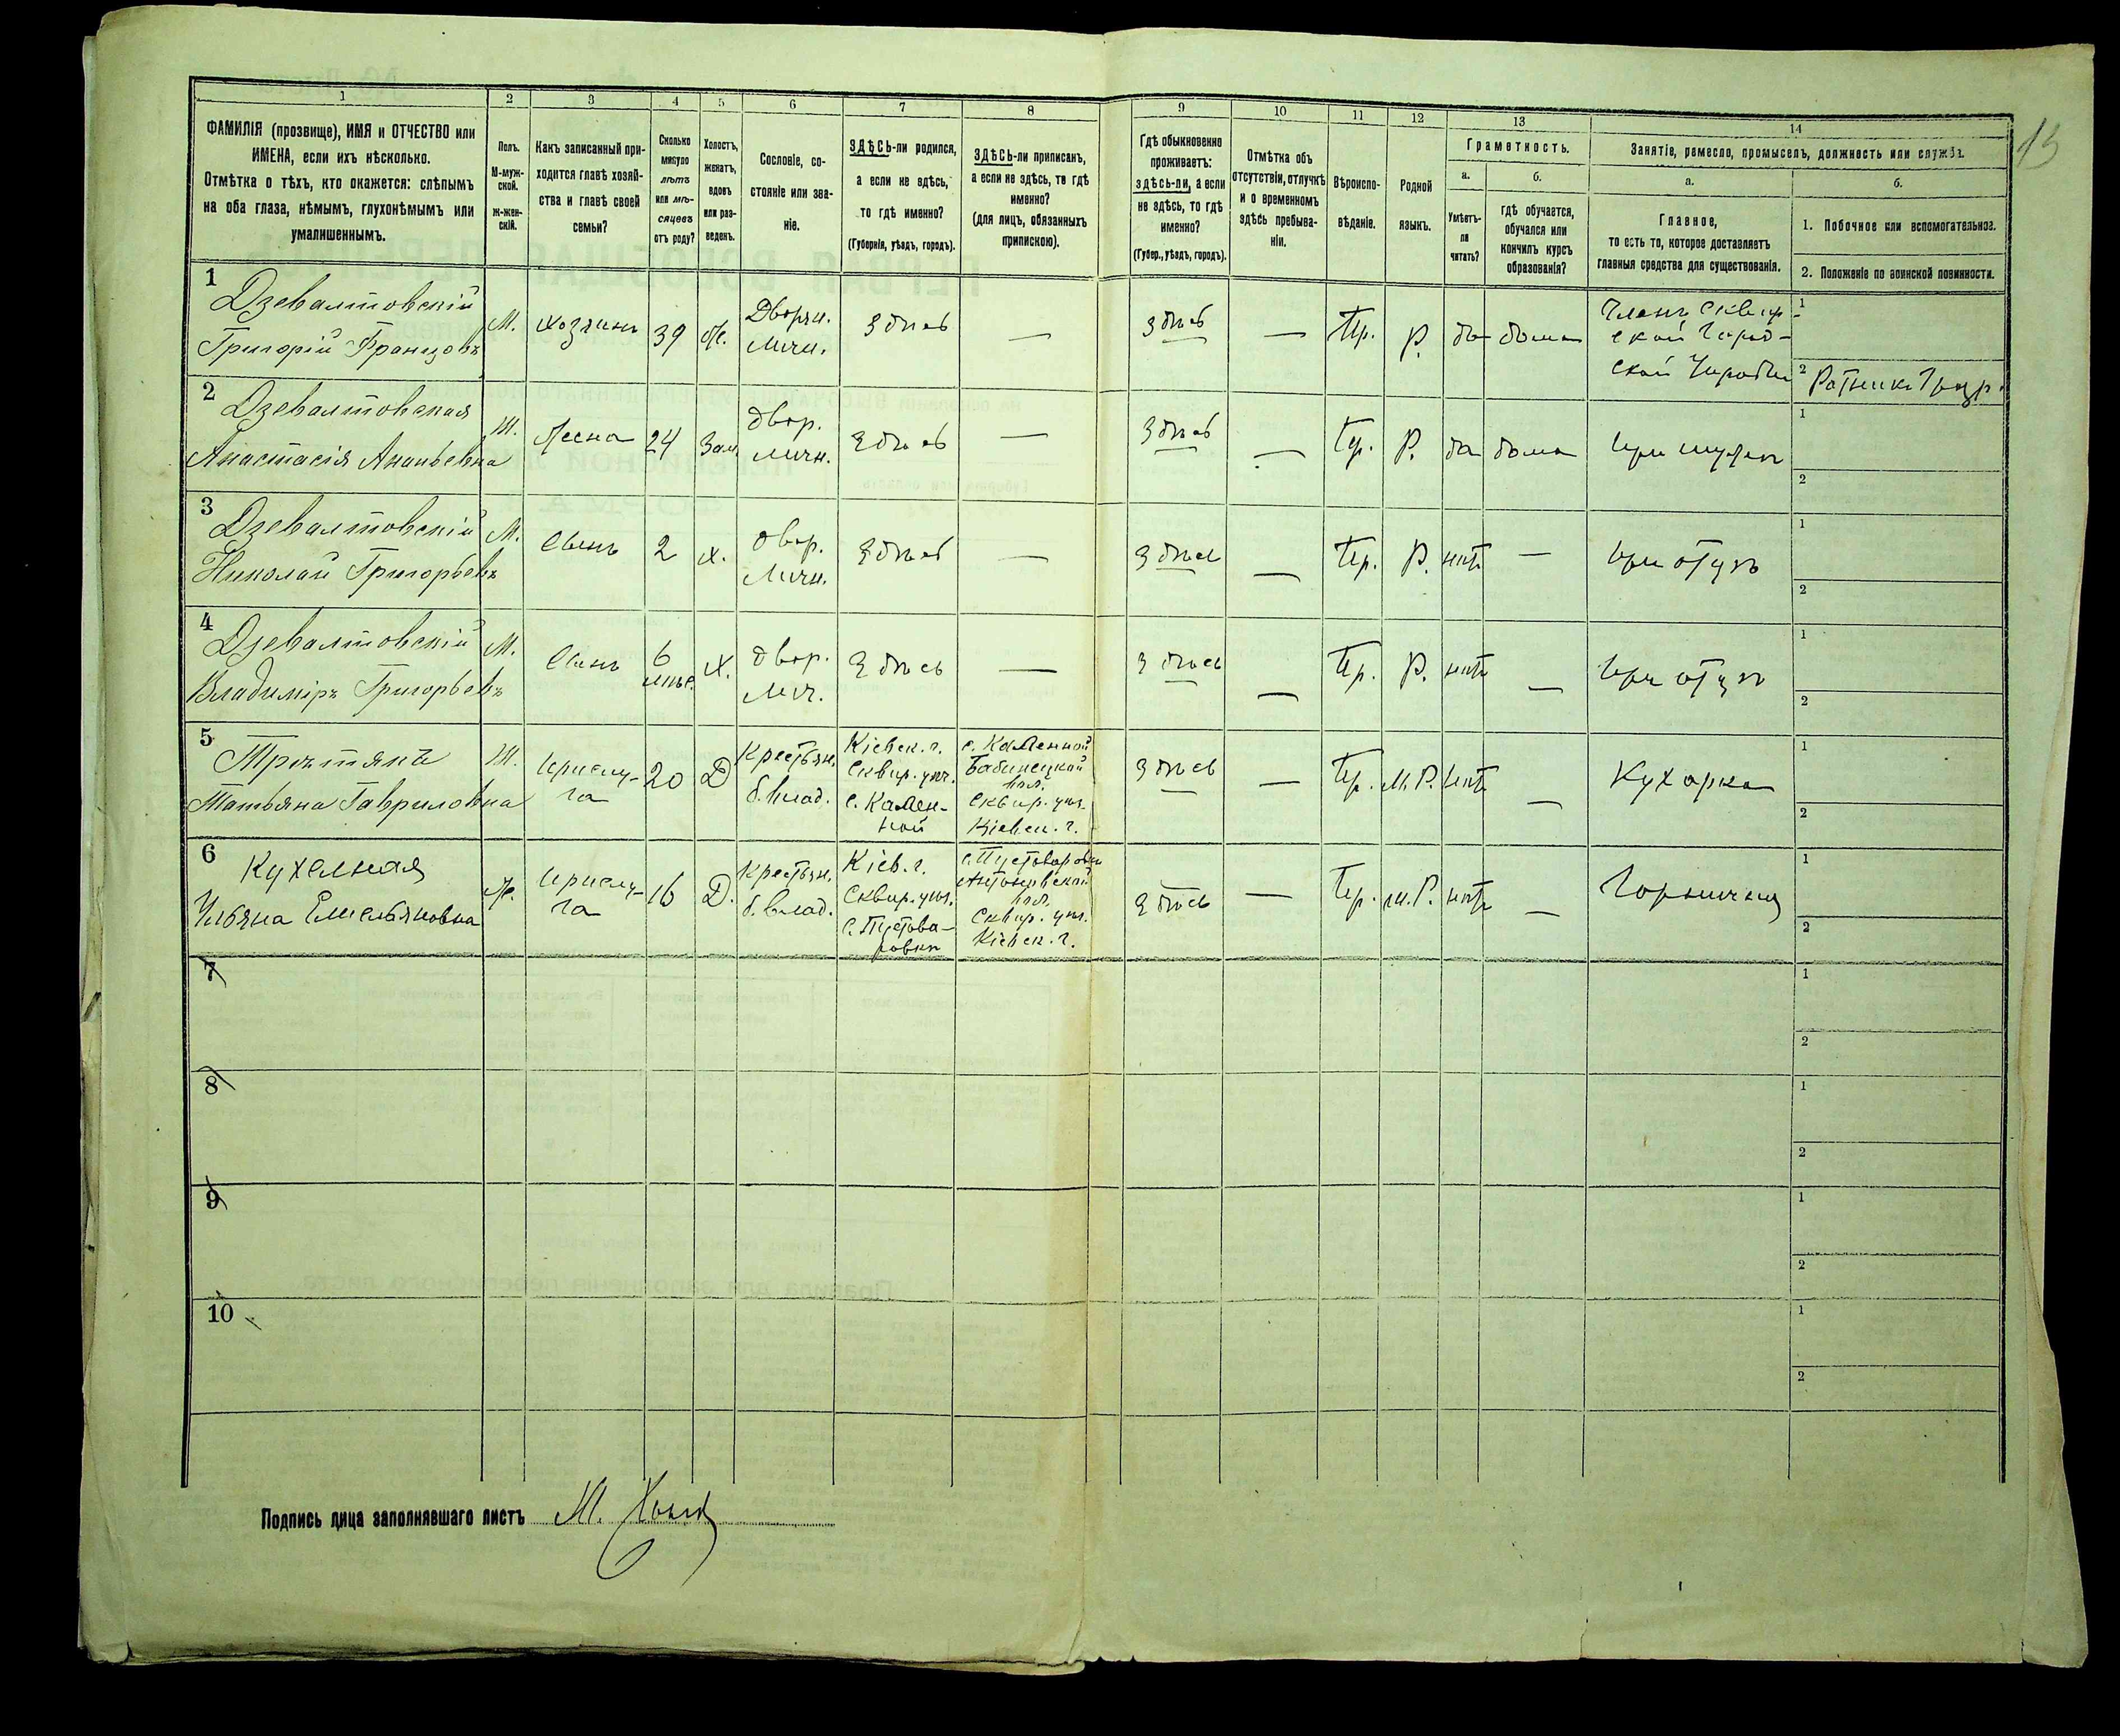 13
1 2 3 4 5 6 7 8 9 10 11 12 13 14
ФАМИЛІЯ (прозвище), ИМЯ и ОТЧЕСТВО или
ИМЕНА, если ихъ нѣсколько.
Отмѣтка о тѣхъ, кто окажется: слѣпымъ
на оба глаза, нѣмымъ, глухонѣмымъ или
умалишеннымъ.
Полъ.
М-муж-
ской.
Ж-жен-
скій.
Какъ записанный при-
ходится главѣ хозяй-
ства и главѣ своей
семьи?
Сколько
минуло
лѣтъ
или мѣ-
сяцевъ
отъ роду?
Холостъ,
женатъ,
вдовъ
или раз-
веденъ.
Сословіе, со-
стояніе или зва-
ніе.
ЗДѢСЬ-ли родился,
а если не здѣсь,
то гдѣ именно?
(Губернія, уѣздъ, городъ).
ЗДѢСЬ-ли приписанъ,
а если не здѣсь, то гдѣ
именно?
(для лицъ, обязанныхъ
припискою).
Гдѣ обыкновенно
проживаетъ:
здѣсь-ли, а если
не здѣсь, то гдѣ
именно?
(Губер., уѣздъ, городъ).
Отмѣтка объ
отсутствіи, отлучкѣ
и о временномъ
здѣсь пребыва-
ніи.
Вѣроиспо-
вѣданіе.
Родной
языкъ.
Грамотность.
а.
Умѣетъ-
ли
читать?
б.
гдѣ обучается,
обучался или
кончилъ курсъ
образованія?
Занятіе, ремесло, промыселъ, должность или служба.
а.
Главное,
то есть то, которое доставляетъ
главныя средства для существованія.
б.
1. Побочное или вспомогательное.
2. Положеніе по воинской повинности.
1
Дзевалтовскій
Григорій Францовъ
М.
хозяинъ
39
Ж.
Дворян.
личн.
Здѣсь
—
Здѣсь
—
Пр.
Р.
да
дома
Членъ Сквир-
ской Город-
ской Управы
1
2 Ратникъ
2
Дзевалтовская
Анастасія Ананьевна
Ж.
Жена
24
Зам.
двор.
личн.
Здѣсь
—
Здѣсь
—
Пр.
Р.
да
дома
при мужѣ
1
2
3
Дзевалтовскій
Николай Григорьевъ
М.
Сынъ
2
Х.
двор.
личн.
Здѣсь
—
Здѣсь
—
Пр.
Р.
нѣтъ
—
при отцѣ
1
2
4
Дзевалтовскій
Владиміръ Григорьевъ
М.
Сынъ
6
мѣс.
Х.
двор.
лич.
Здѣсь
—
Здѣсь
—
Пр.
Р.
нѣтъ
—
при отцѣ
1
2
5
Татьяна Гавриловна
Ж.
прислу-
га
20
Д
Крестьян.
б. влад.
Кіевск. г.
Сквир. уѣз.
с. Камен-
ной
с. Каменной
Бабинецкой
вол.
Сквир. уѣз.
Кіевск. г.
Здѣсь
—
Пр.
М. Р.
нѣтъ
—
Кухарка
1
2
6
Ульяна Емельяновна
Ж.
прислу-
га
16
Д.
Крестьян.
б. влад.
Кіев. г.
Сквир. уѣз.
с. Пустова-
ровки
с. Пустоваровки
Антоновской
вол.
Сквир. уѣз.
Кіевск. г.
Здѣсь
—
Пр.
М. Р.
нѣтъ
—
Горничная
1
2
7
1
2
8
1
2
9
1
2
10
1
2
Подпись лица заполнявшаго листъ